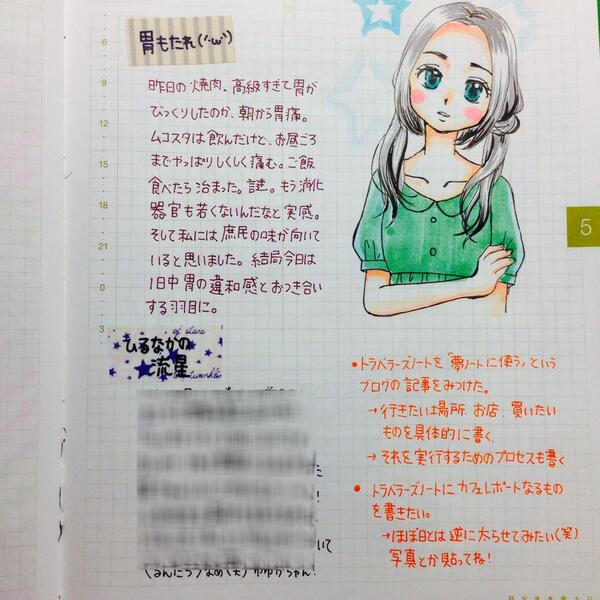 胃もたれ(´·ω`)
昨日の焼肉、高級すぎて胃が
びっくりしたのか、朝から胃痛。
ムコスタは飲んだけど、お昼ごろ
までやっぱりしくしく痛む。ご飯
食べたら治まった。謎。もう消化
器官も若くないんだなと実感。
そして私には庶民の味が向いて
いると思いました。結局今日は
1日中胃の違和感とおつき合い
する羽目に。
6
9
12
15
18
21
0
3
5
of stars
ひるなかの
流星
twinkle
•トラベラーズノートを「夢ノートに使う」という
ブログの記事をみつけた。
→行きたい場所、お店、買いたい
ものを具体的に書く、
→それを実行するためのプロセスも書く
• トラベラーズノートにカフェレポートなるもの
を書きたい。
→ほぼ日とは逆に太らせてみたい(笑)
写真とか貼ってね!
いて
ゆゆかちゃん!